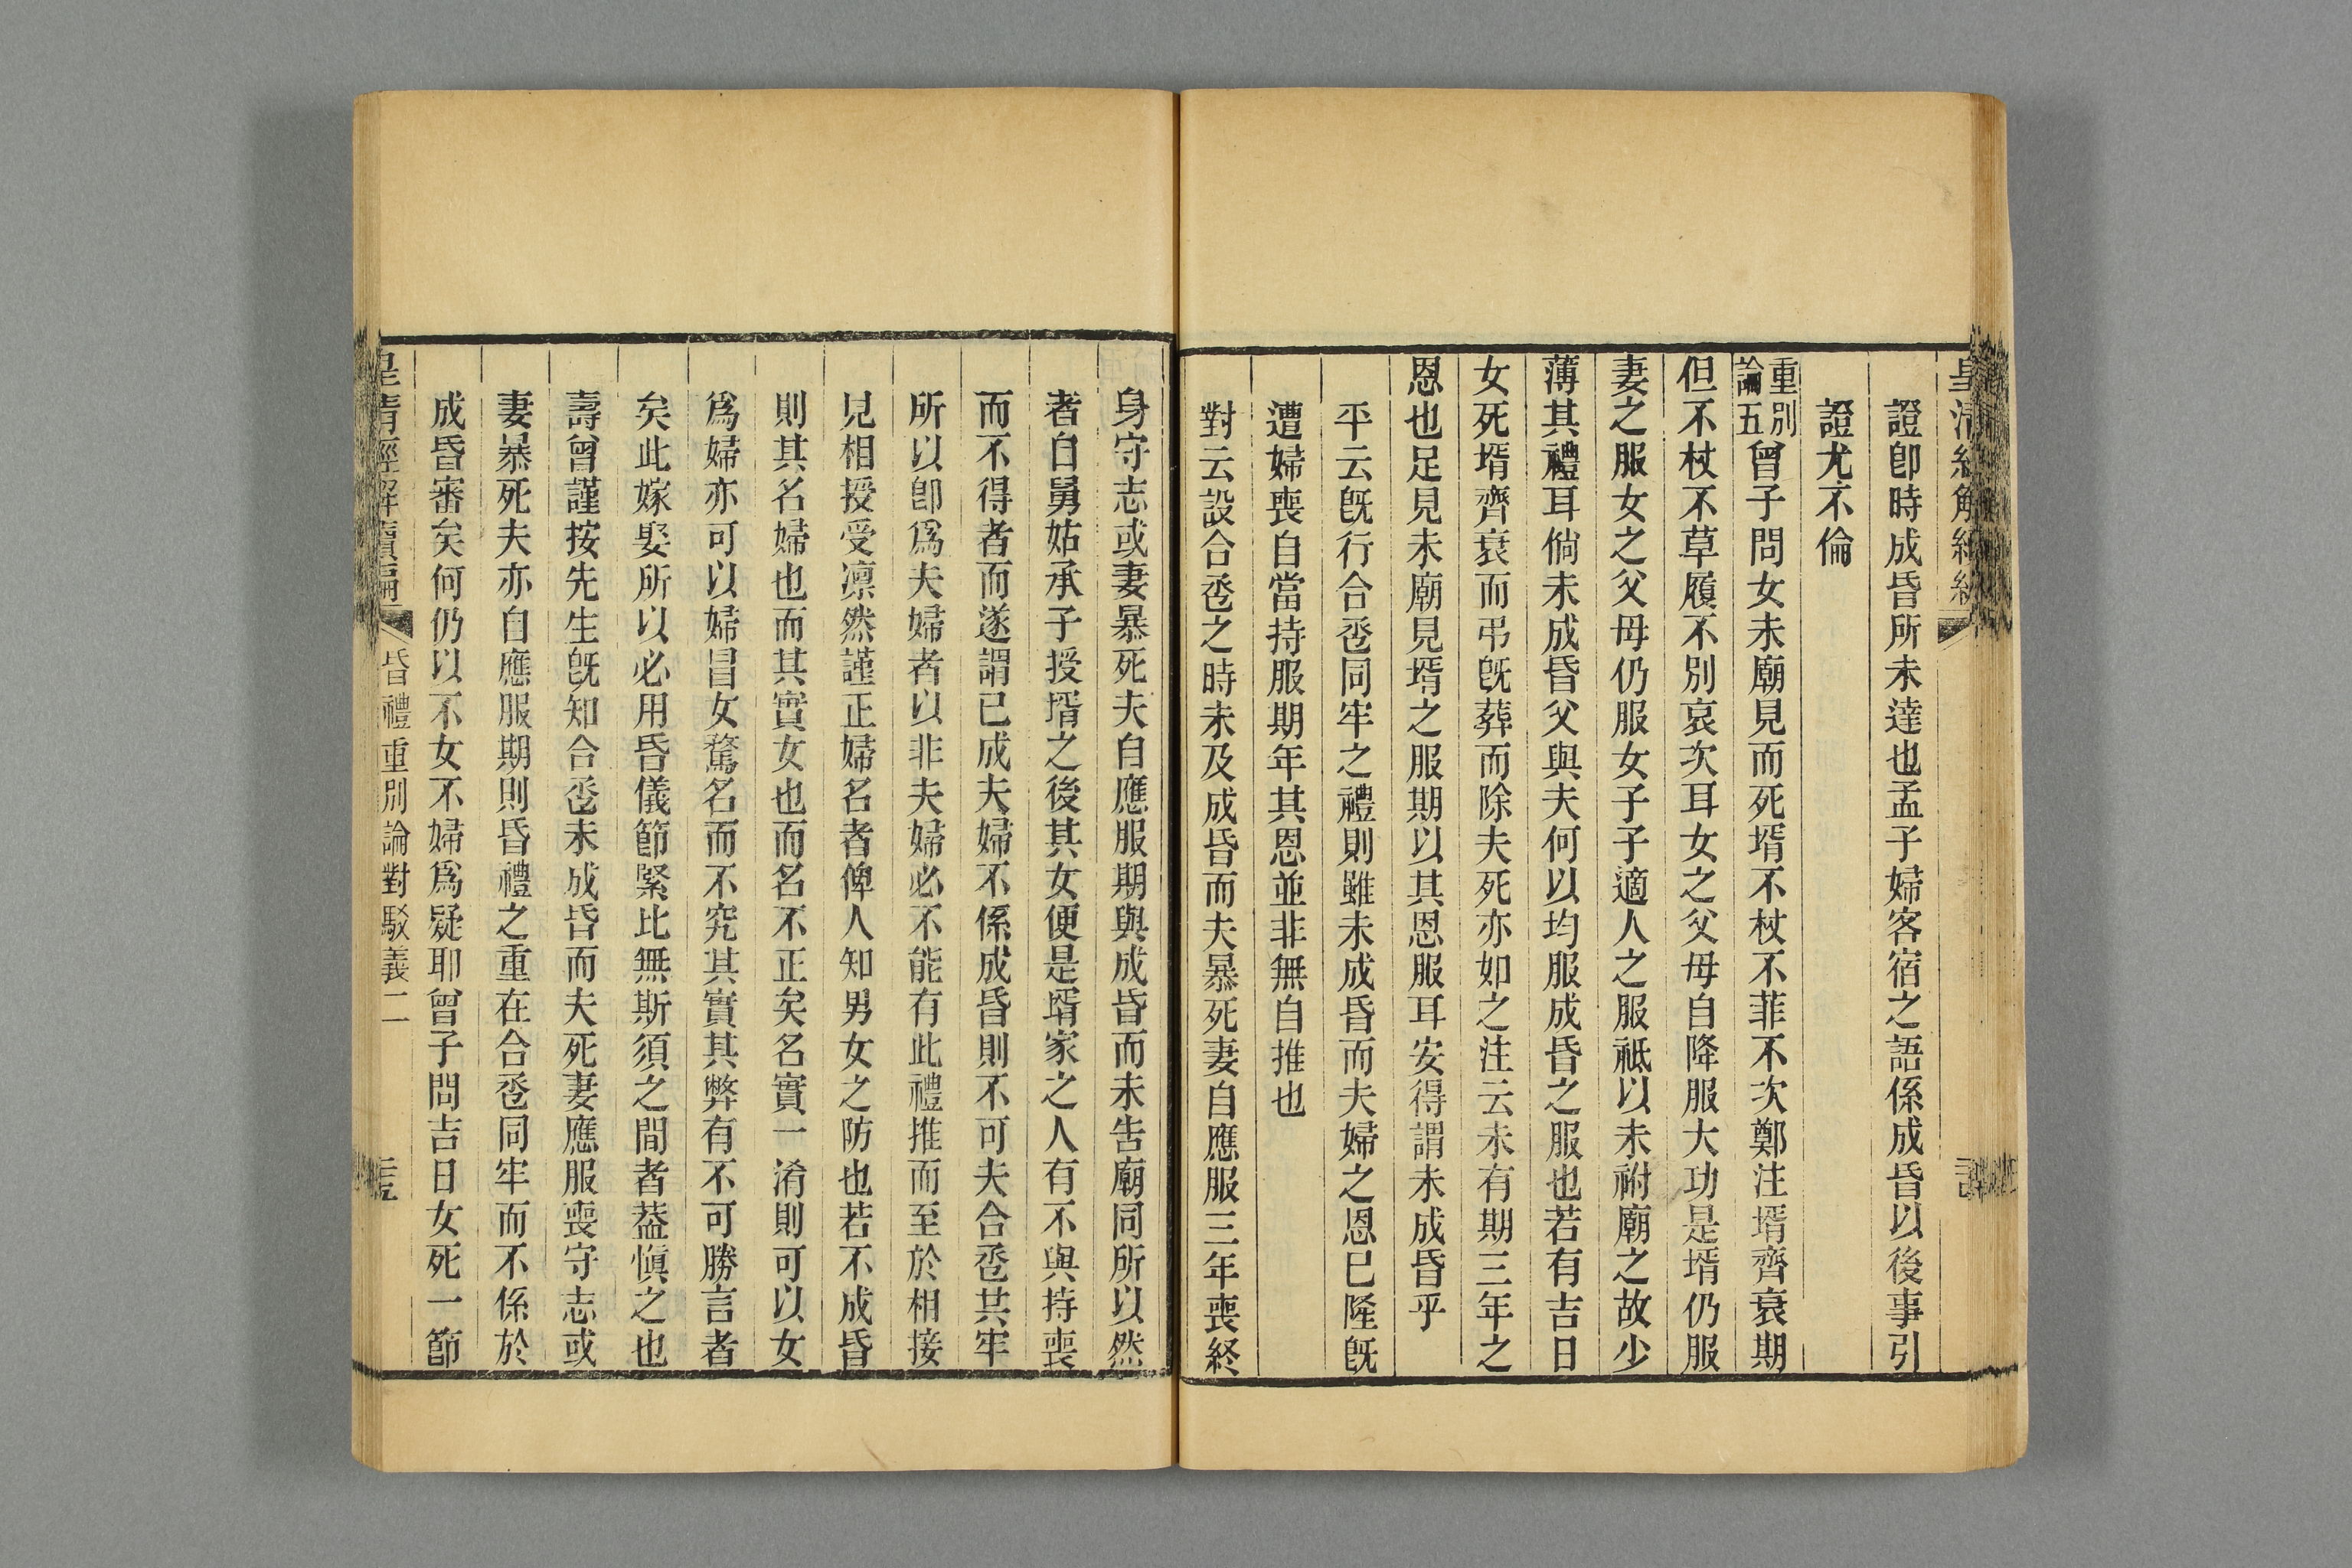 證卽時成昏所未達也孟子婦客宿之語係成昏以後事引
證尤不倫
重別論五曾子問女未廟見而死壻不杖不菲不次鄭注壻齊衰期
但不杖不草履不別哀次耳女之父母自降服大功是壻仍服
妻之服女之父母仍服女子子適人之服祗以未祔廟之故少
薄其禮耳倘未成昏父與夫何以均服成昏之服也若有吉日
女死壻齊衰而弔旣葬而除夫死亦如之注云未有期三年之
恩也足見未廟見壻之服期以其恩服耳安得謂未成昏乎
平云旣行合巹同牢之禮則雖未成昏而夫婦之恩已隆旣
遭婦喪自當持服期年其恩並非無自推也
對云設合巹之時未及成昏而夫暴死妻自應服三年喪終
身守志或妻暴死夫自應服期與成昏而未告廟同所以然
者自舅姑承子授壻之後其女便是壻家之人有不與持喪
而不得者而遂謂已成夫婦不係成昏則不可夫合巹共牢
所以卽爲夫婦者以非夫婦必不能有此禮推而至於相接
見相授受凛然謹正婦名者俾人知男女之防也若不成昏
則其名婦也而其實女也而名不正矣名實一淆則可以女
爲婦亦可以婦冒女騖名而不究其實其弊有不可勝言者
矣此嫁娶所以必用昏儀節緊比無斯須之間者葢愼之也
壽曾謹按先生旣知合巹未成昏而夫死妻應服喪守志或
妻暴死夫亦自應服期則昏禮之重在合巹同牢而不係於
成昏審矣何仍以不女不婦爲疑耶曾子問吉日女死一節
皇清經解續編 昏禮重別論對駁義二